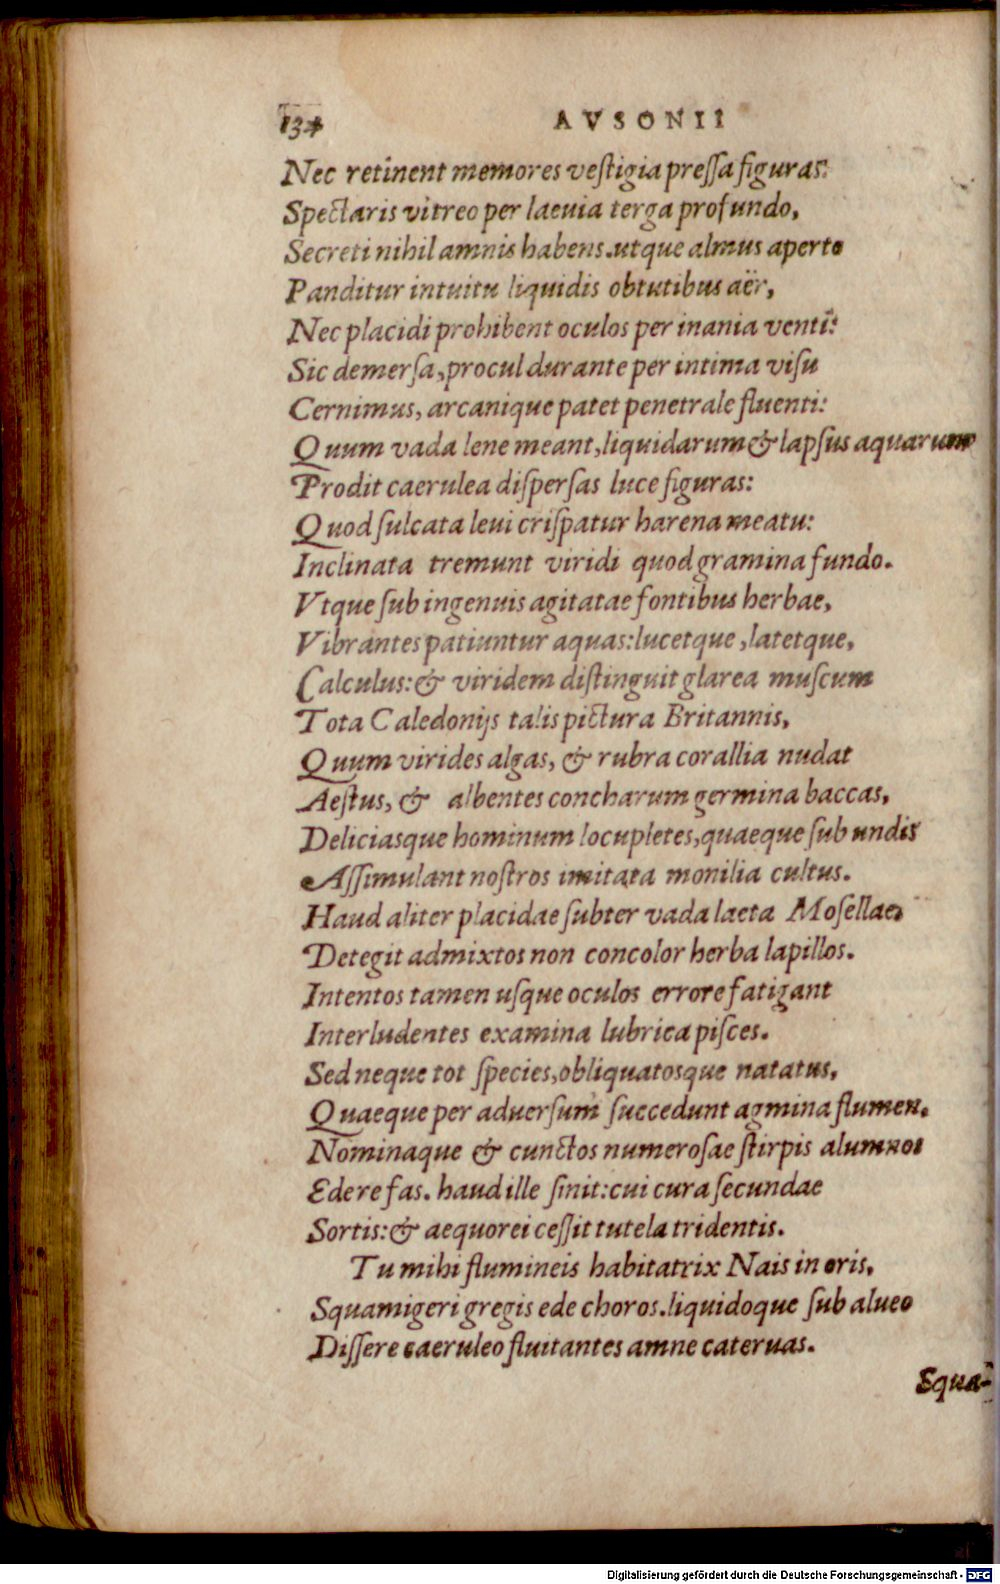 134
AVSONII
Nec retinent memores veſtigia preſſa figuras:
Spectaris vitreo per laeuia terga profundo,
Secreti nihil amnis habens. utque almus aperto
Panditur intuitu liquidis obtutibus aër,
Nec placidi prohibent oculos per inania venti:
Sic demerſa, procul durante per intima viſu
Cernimus, arcanique patet penetrale fluenti:
Quum vada lene meant, liquidarum & lapſus aquarum
Prodit caerulea diſperſas luce figuras:
Quod ſulcata leui criſpatur harena meatu:
Inclinata tremunt viridi quod gramina fundo.
Vtque ſub ingenuis agitatae fontibus herbae,
Vibrantes patiuntur aquas: lucetque, latetque,
Calculus: & viridem diſtinguit glarea muſcum
Tota Caledonijs talis pictura Britannis,
Quum virides algas, & rubra corallia nudat
Aeſtus, & albentes concharum germina baccas,
Deliciasque hominum locupletes, quaeque ſub undis
Aſſimulant noſtros imitata monilia cultus.
Haud aliter placidae ſubter vada laeta Moſellae,
Detegit admixtos non concolor herba lapillos.
Intentos tamen uſque oculos errore fatigant
Interludentes examina lubrica piſces.
Sed neque tot ſpecies, obliquatosque natatus,
Quaeque per aduerſum ſuccedunt agmina flumen,
Nominaque & cunctos numeroſae ſtirpis alumnos
Edere fas. haud ille ſinit: cui cura ſecundae
Sortis: & aequorei ceſſit tutela tridentis.
Tu mihi flumineis habitatrix Nais in oris,
Squamigeri gregis ede choros. liquidoque ſub alueo
Diſſere caeruleo fluitantes amne cateruas.
Squa-
Digitalisierung gefördert durch die Deutsche Forschungsgemeinschaft - DFG